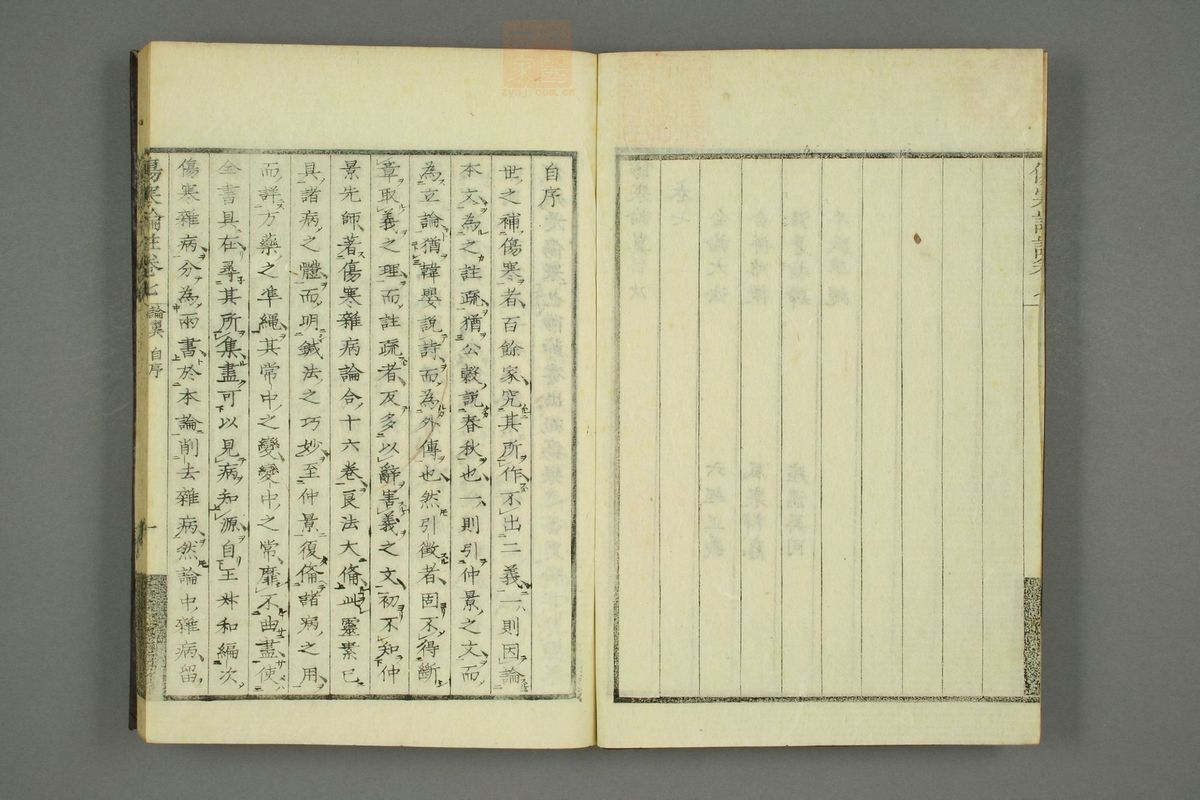 自序
世之補傷寒者百餘家究其所作不出二義一則因論
本文為之註疏猶公穀說春秋也一則引仲景之文而
為立論猶韓嬰說詩而為外傳也然引徵者固不得斷
章取義之理而註疏者反多以辭害義之文初不知仲
景先師著傷寒雜病論合十六卷良法大備此靈素已
具諸病之體而明鍼法之巧妙至仲景復備諸病之用
而詳方藥之準繩其常中之變變中之常靡不曲盡使
全書具在尋其所集盡可以見病知源自王叔和編次
傷寒雜病分為兩書於本論削去雜病然論中雜病留
傷寒論註卷七 論翼 自序 一
zysj.com.cn